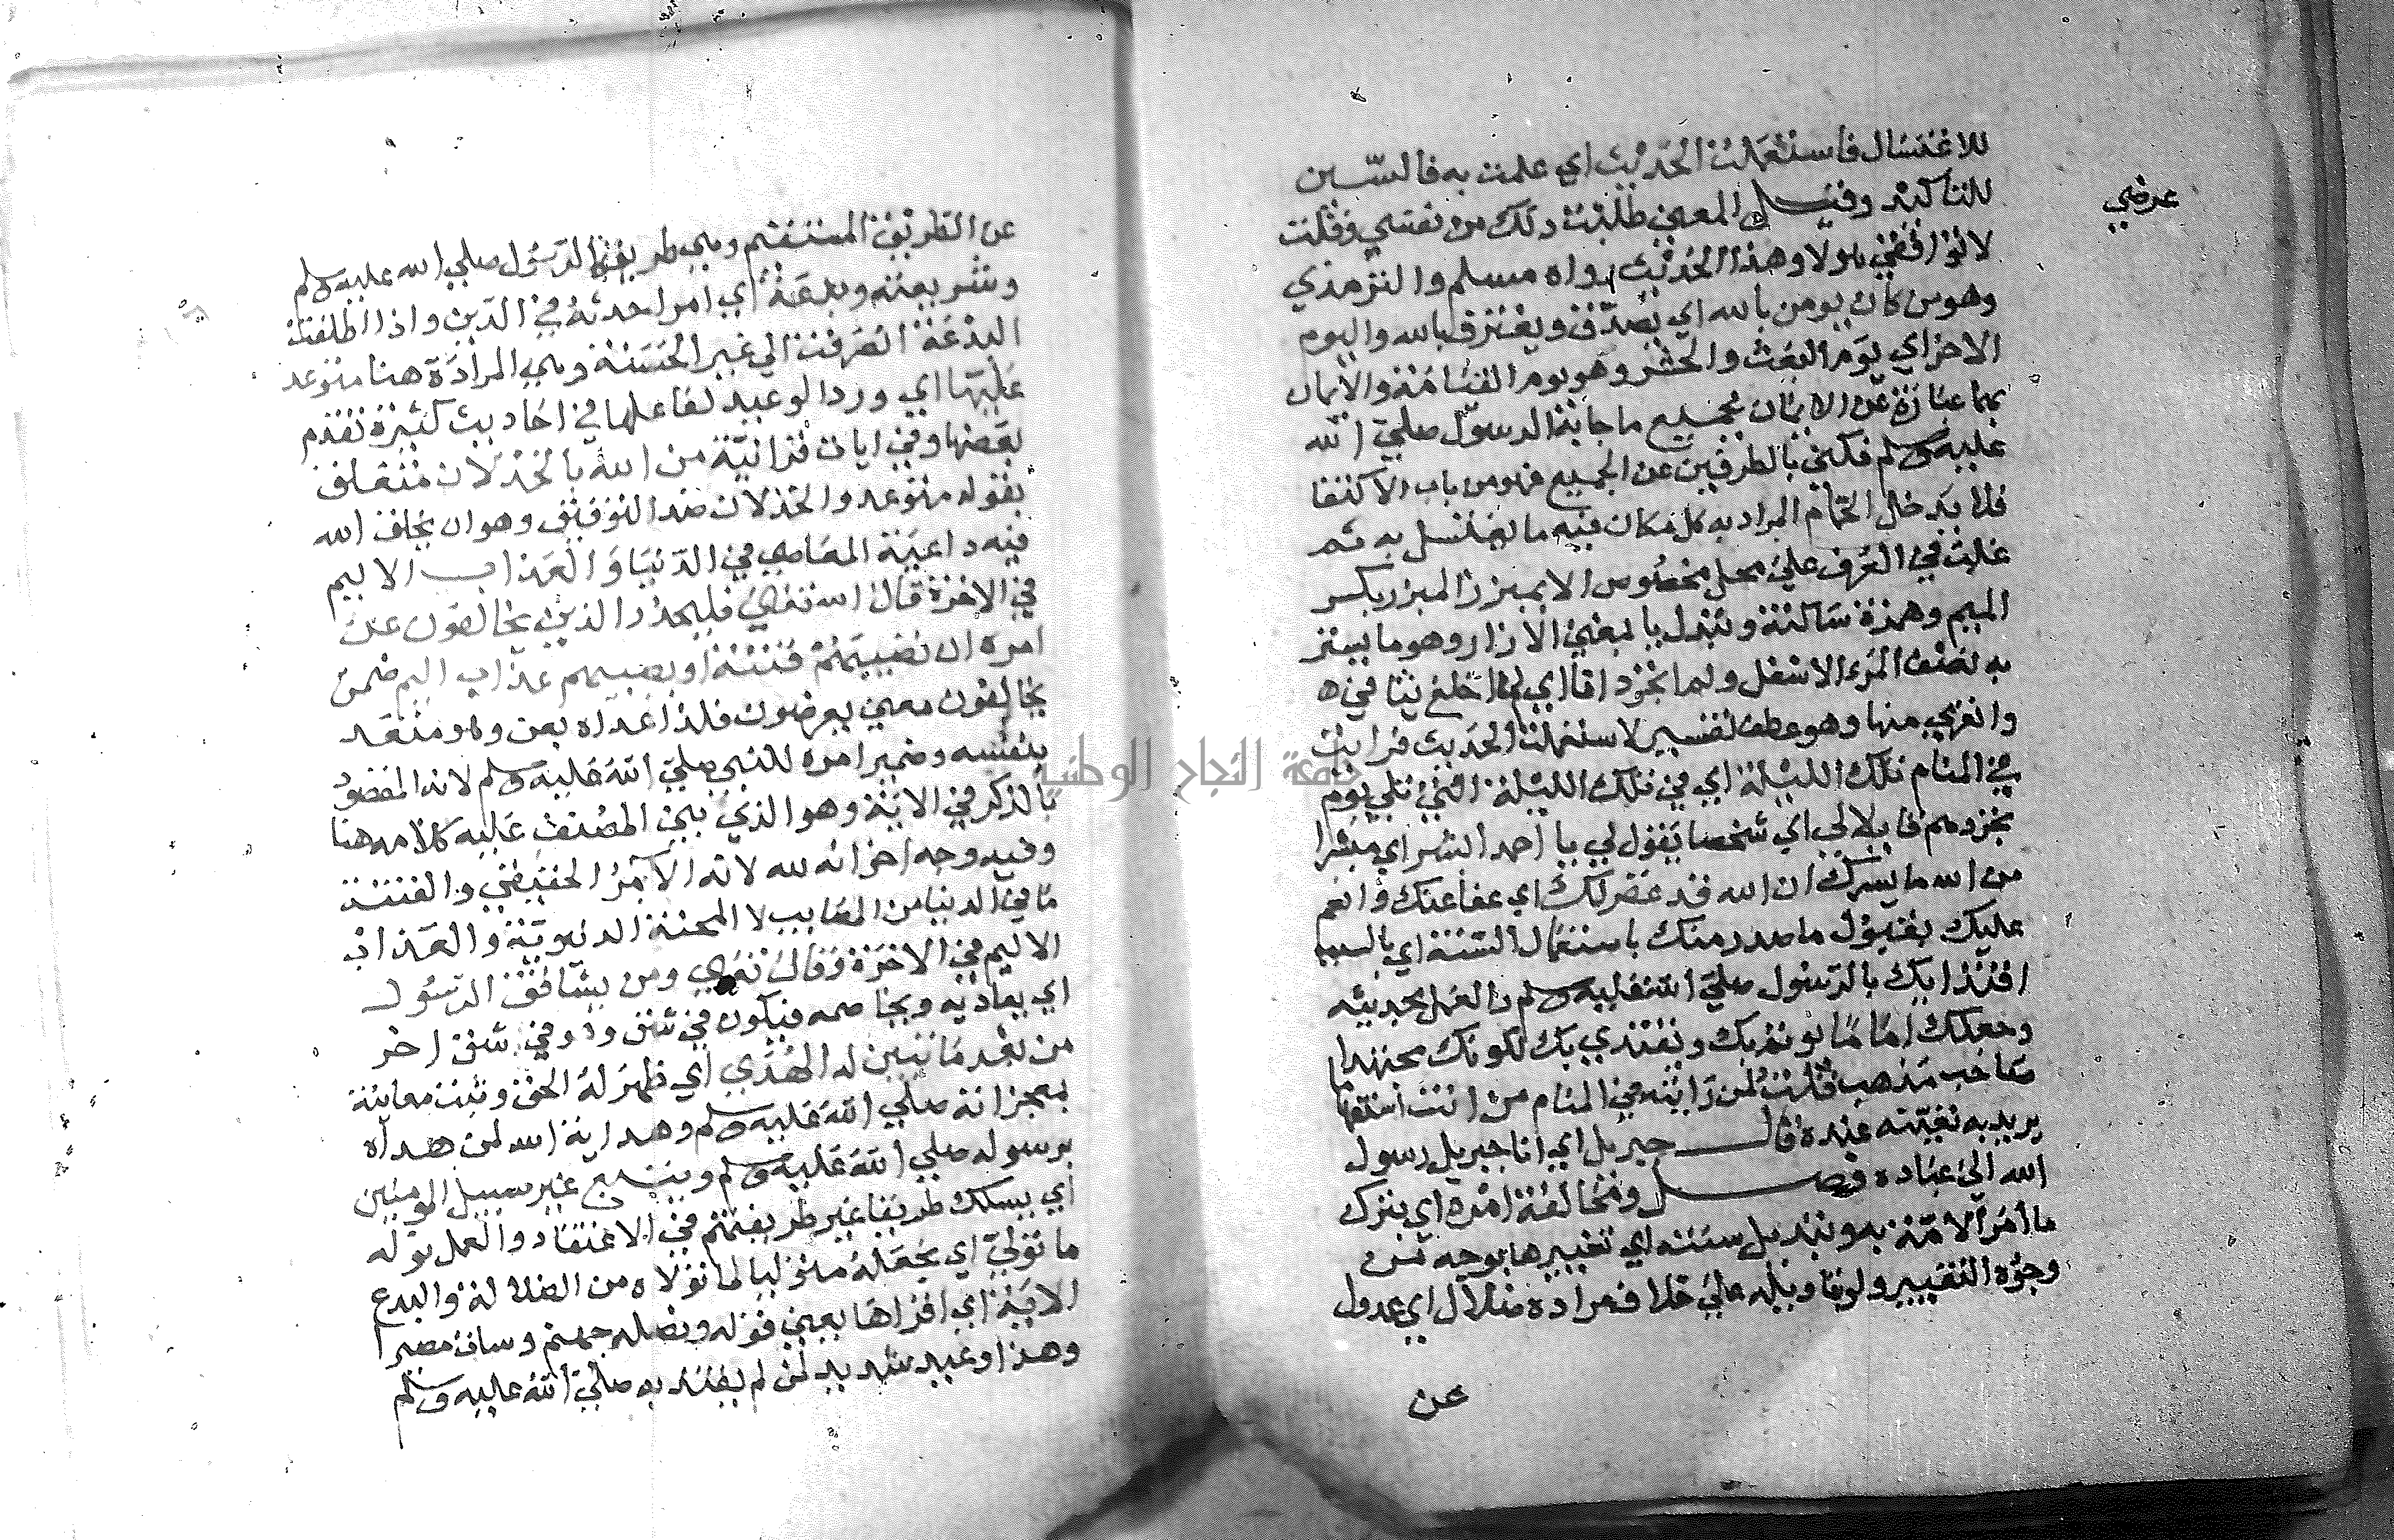 للاغتسال فاستعملت الحديث اي عملت به فالسين
عرضي
للتاكيد وقيل المعني طلبت ذلك من نفسي وقلت
لا توافقني ولا وهذا الحديث رواه مسلم والترمذي
وهو من كان يومن بالله اي يصدق ويعترف بالله واليوم
الاخر اي يوم البعث والحشر وهو يوم القيامة والايمان
بهما عبارة عن الايمان بجميع ما جابه الرسول صلي الله
عليه وسلم فكني بالطرفين عن الجميع فهو من باب الاكتفا
فلا يدخل الحمام المراد به كل مكان فيه ما يغتسل به ثم
غلب في العرف علي محل مخصوص الا بميزر المئزر بكسر
الميم وهمزة ساكنة وتبدل يا بمعني الازار وهو ما يستر
به نصف المرء الاسفل ولم اتجرد انا اي لم اخلع ثيابي ه
وانعري منها وهو عطف تفسير لاستعملت الحديث فرايت
في المنام تلك الليلة اي في تلك الليلة التي تلي يوم
تجردهم قايلا لي اي شخصا يقول لي يا احمد ابشر اي مبشرا
من الله ما يسرك ان الله قد غفر لك اي عفا عنك وانعم
عليك بقبول ما صدر منك باستعمال السنة اي بالسبب
اقتدايك بالرسول صلي الله عليه وسلم والعمل بحديثه
وجعلك اماما يوتم بك ويقتدي بك لكونك مجتهدا
صاحب مذهب قلت لمن رايته في المنام من انت استفهاما
يريد به تعينه عنده قال جبريل اي انا جبريل رسول
الله الي عباده فصل ومخالفة امره اي بترك
ما امر الامة به وتبديل سنته اي تغييرها بوجه من
وجوه التغيير ولو بتاويله علي خلاف مراده ضلال اي عدول
عن
عن الطريق المستقيم وهي طريقة الرسول صلي الله عليه وسلم
وشريعته وبدعة اي امر احدثه في الدين واذا اطلقت
البدعة انصرفت الي غير الحسنة وهي المرادة هنا متوعد
عليها اي ورد الوعيد لفاعلها في احاديث كثيرة تقدم
بعضها وفي ايات قرانية من الله بالخذلان متعلق
بقوله متوعد والخذلان ضد التوفيق وهو ان يخلق الله
فيه داعية المعاصي في الدنيا والعذاب الاليم
في الاخرة قال الله تعالي فليحذر الذين يخالفون عن
امره ان تصيبهم فتنة او يصيبهم عذاب اليم ضمن
يخالفون معني يعرضون فلذا عداه بعن وهو متعد
بنفسه وضمير امره للنبي صلي الله عليه وسلم لانه المقصود
بالذكر في الاية وهو الذي بني المصنف عليه كلامه هنا
وفيه وجه اخر انه لله لانه الآمر الحقيقي والفتنة
ما في الدنيا من المصايب لا المحنة الدنيوية والعذاب
الاليم في الاخرة وقال تعالي ومن يشاقق الرسول
اي يعاديه ويخاصمه فيكون في شق وهو في شق اخر
من بعد ما تبين له الهدي اي ظهر له الحق وتبت معاينة
بمعجزاته صلي الله عليه وسلم وهداية الله لمن هداه
برسوله صلي الله عليه وسلم ويتبع غير سبيل المومنين
اي يسلك طريقا غير طريقتهم في الاعتقاد والعمل نوله
ما تولي اي نجعله متوليا لما تولاه من الضلالة والبدع
الاية اي اقراها يعني قوله ونصله جهنم وسات مصيرا
وهذا وعيد شديد لمن لم يقتد به صلي الله عليه وسلم
جامعة النجاح الوطنية